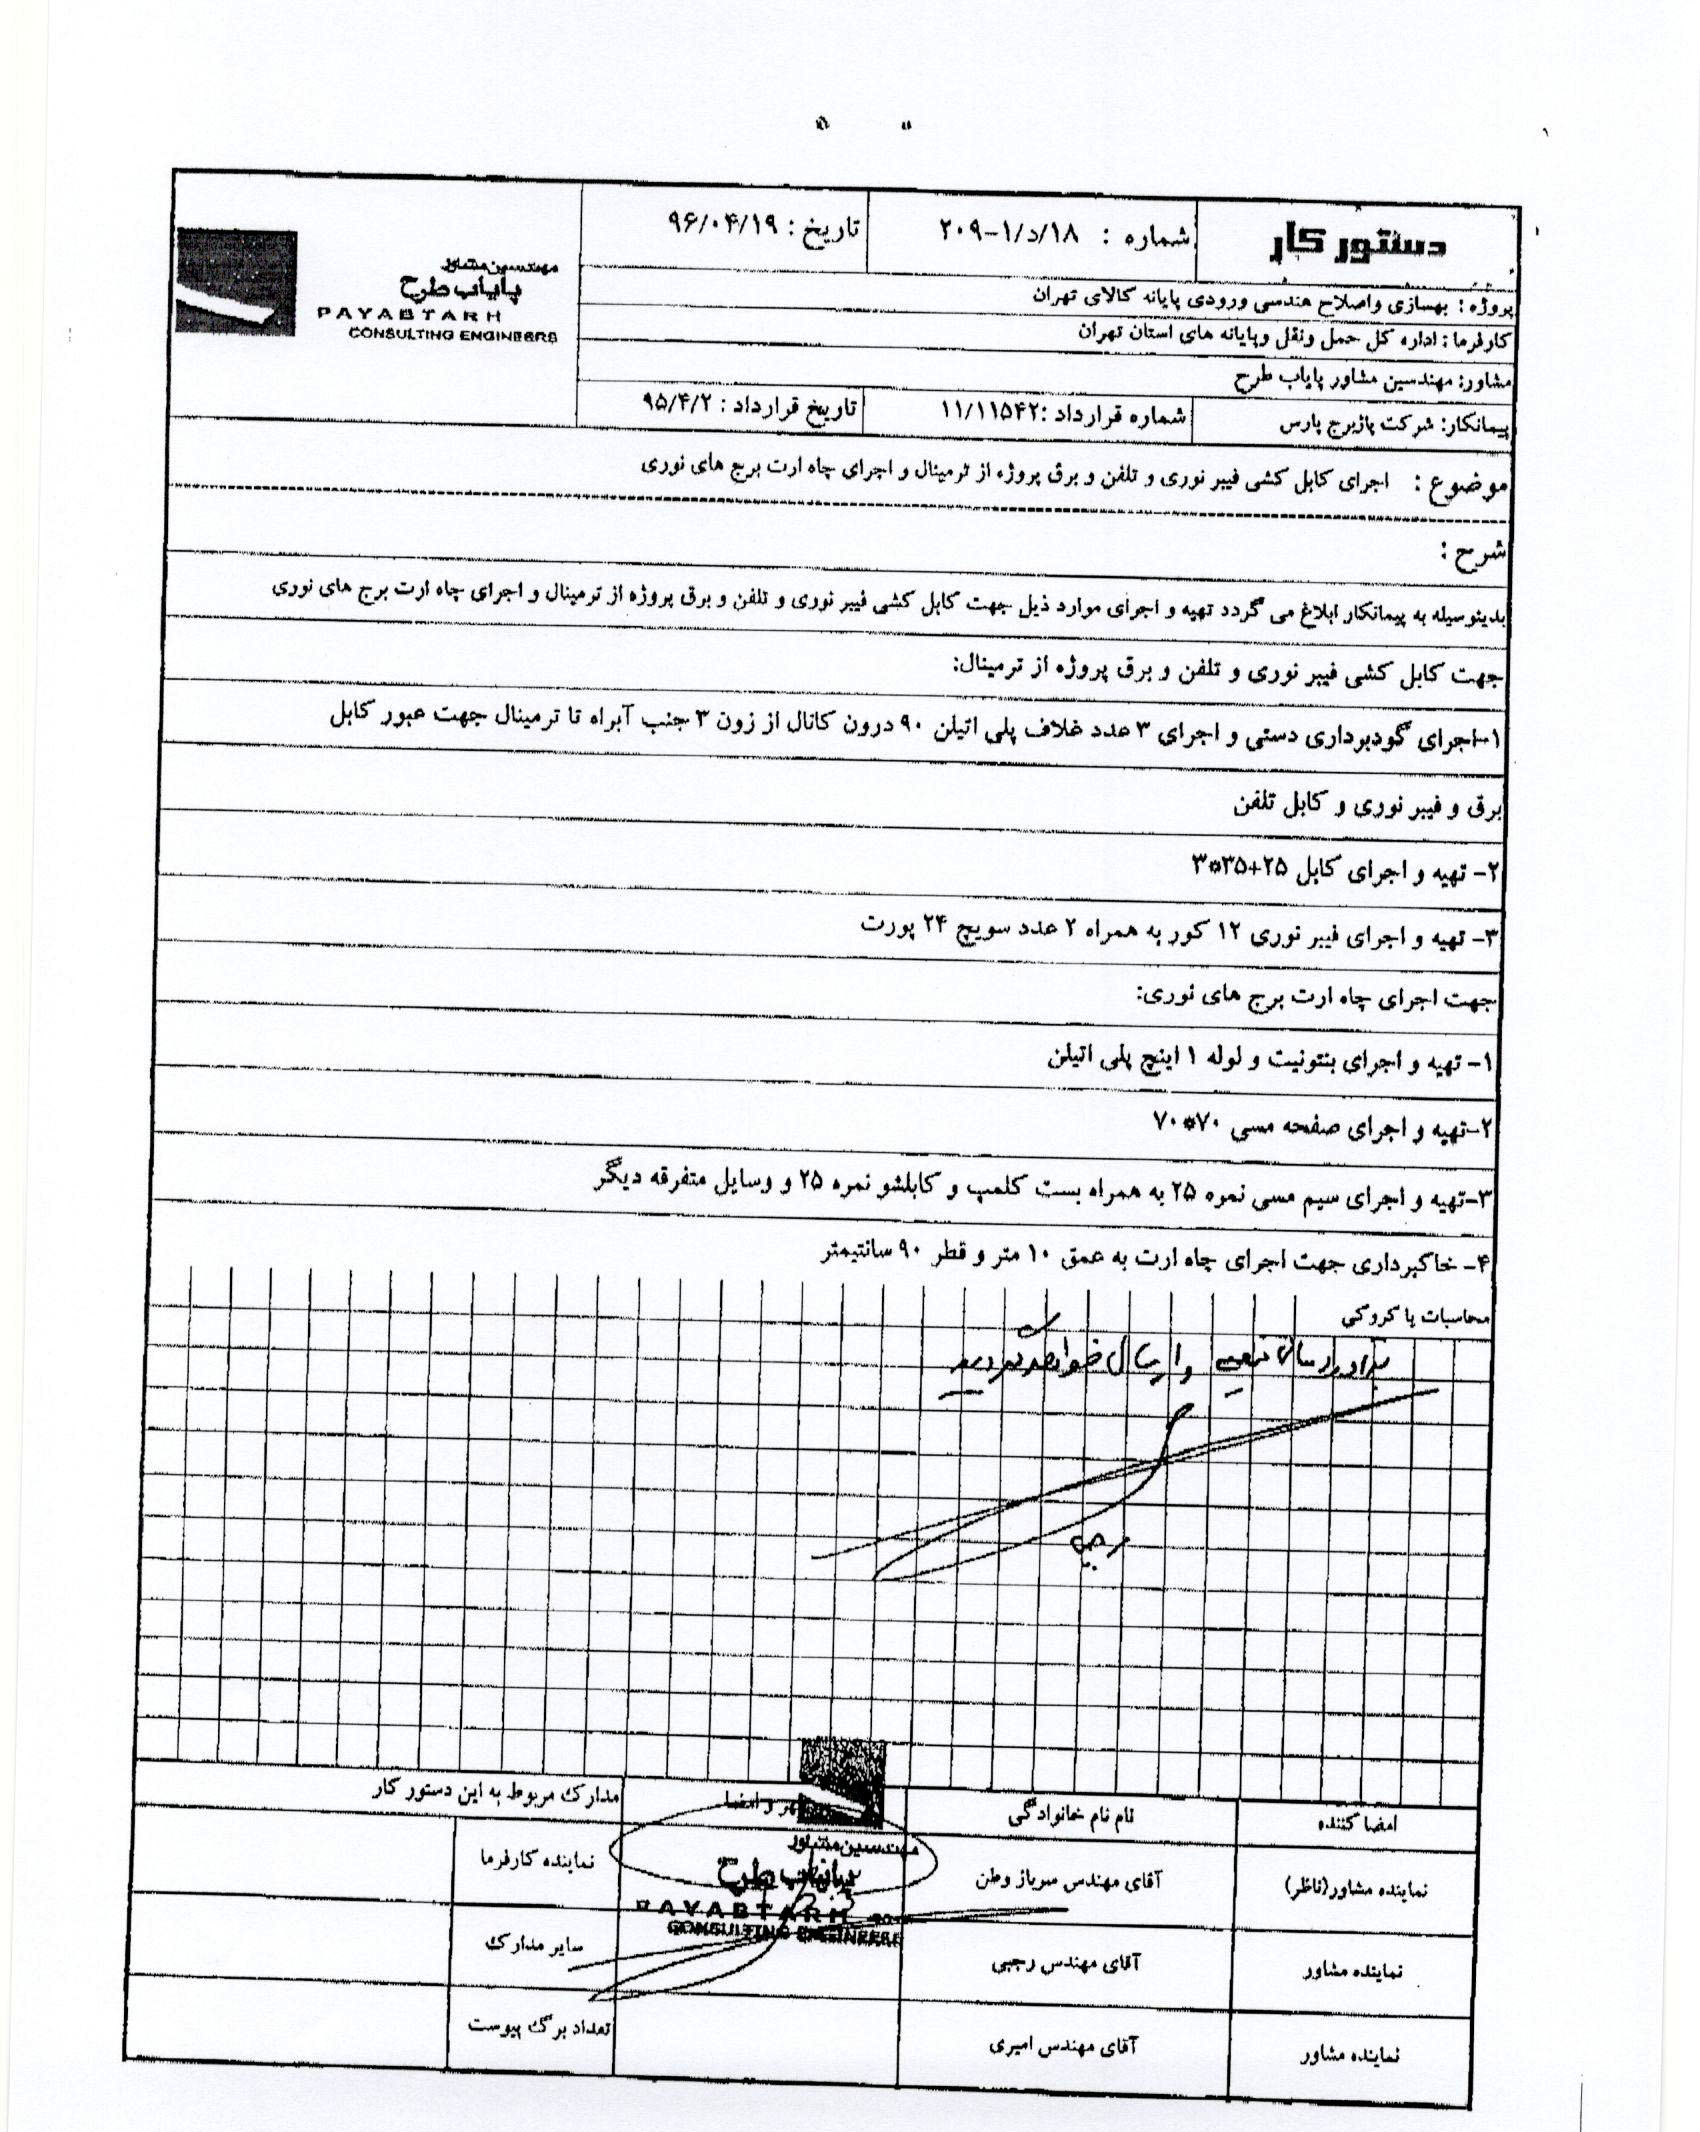 دستور کار
شماره : ۲۰۹-۱/د/۱۸
تاریخ : ۹۶/۰۴/۱۹
مهندسین مشاور
پایاب طرح
PAYABTARH
CONSULTING ENGINEERS
پروژه : بهسازی واصلاح هندسی ورودی پایانه کالای تهران
کارفرما : اداره کل حمل ونقل وپایانه های استان تهران
مشاور: مهندسین مشاور پایاب طرح
پیمانکار: شرکت پازبرج پارس
شماره قرارداد :۱۱/۱۱۵۴۲
تاریخ قرارداد : ۹۵/۴/۲
موضوع : اجرای کابل کشی فیبر نوری و تلفن و برق پروژه از ترمینال و اجرای چاه ارت برج های نوری
شرح :
بدینوسیله به پیمانکار ابلاغ می گردد تهیه و اجرای موارد ذیل جهت کابل کشی فیبر نوری و تلفن و برق پروژه از ترمینال و اجرای چاه ارت برج های نوری
جهت کابل کشی فیبر نوری و تلفن و برق پروژه از ترمینال:
۱-اجرای گودبرداری دستی و اجرای ۳ عدد غلاف پلی اتیلن ۹۰ درون کانال از زون ۳ جنب آبراه تا ترمینال جهت عبور کابل
برق و فیبر نوری و کابل تلفن
۲- تهیه و اجرای کابل ۲۵+۳۵*۳
۳- تهیه و اجرای فیبر نوری ۱۲ کور به همراه ۲ عدد سویچ ۲۴ پورت
جهت اجرای چاه ارت برج های نوری:
۱- تهیه و اجرای بنتونیت و لوله ۱ اینچ پلی اتیلن
۲-تهیه و اجرای صفحه مسی ۷۰*۷۰
۳-تهیه و اجرای سیم مسی نمره ۲۵ به همراه بست کلمپ و کابلشو نمره ۲۵ و وسایل متفرقه دیگر
۴- خاکبرداری جهت اجرای چاه ارت به عمق ۱۰ متر و قطر ۹۰ سانتیمتر
محاسبات یا کروکی
وارسال
رجبی
امضا کننده
نام نام خانوادگی
مهر و امضا
مدارک مربوط به این دستور کار
نماینده مشاور(ناظر)
آقای مهندس سرباز وطن
نماینده کارفرما
مهندسین مشاور
پایاب طرح
PAYABTARH
CONSULTING ENGINEERS
نماینده مشاور
آقای مهندس رجبی
سایر مدارک
نماینده مشاور
آقای مهندس امیری
تعداد برگ پیوست